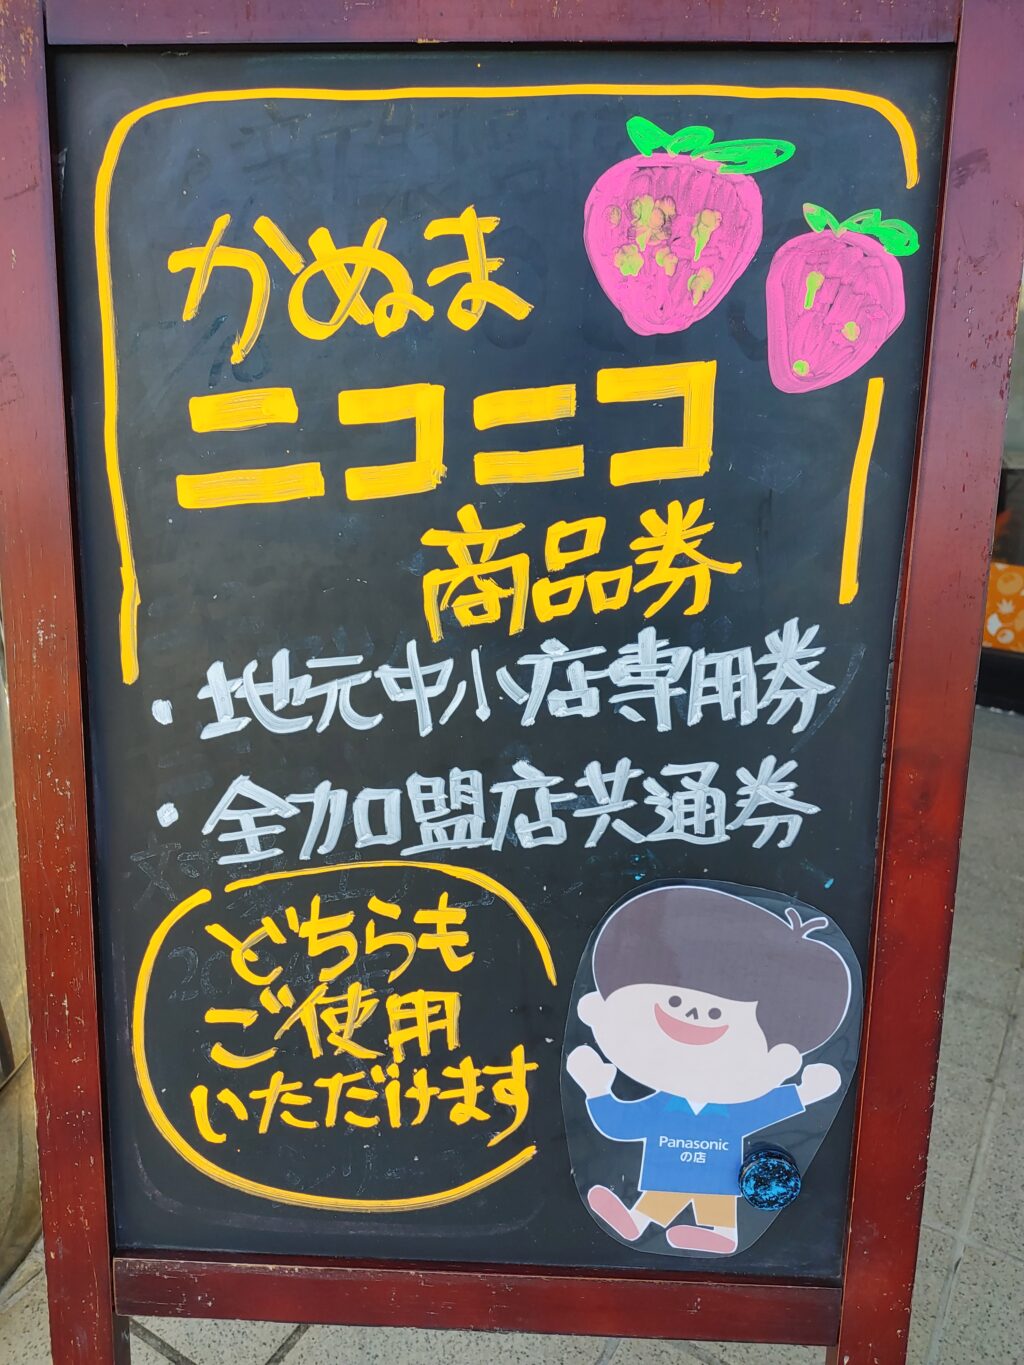 かぬま
ニコニコ
商品券
・地元中小店専用券
・全加盟店共通券
どちらも
ご使用
いただけます
Panasonic
の店